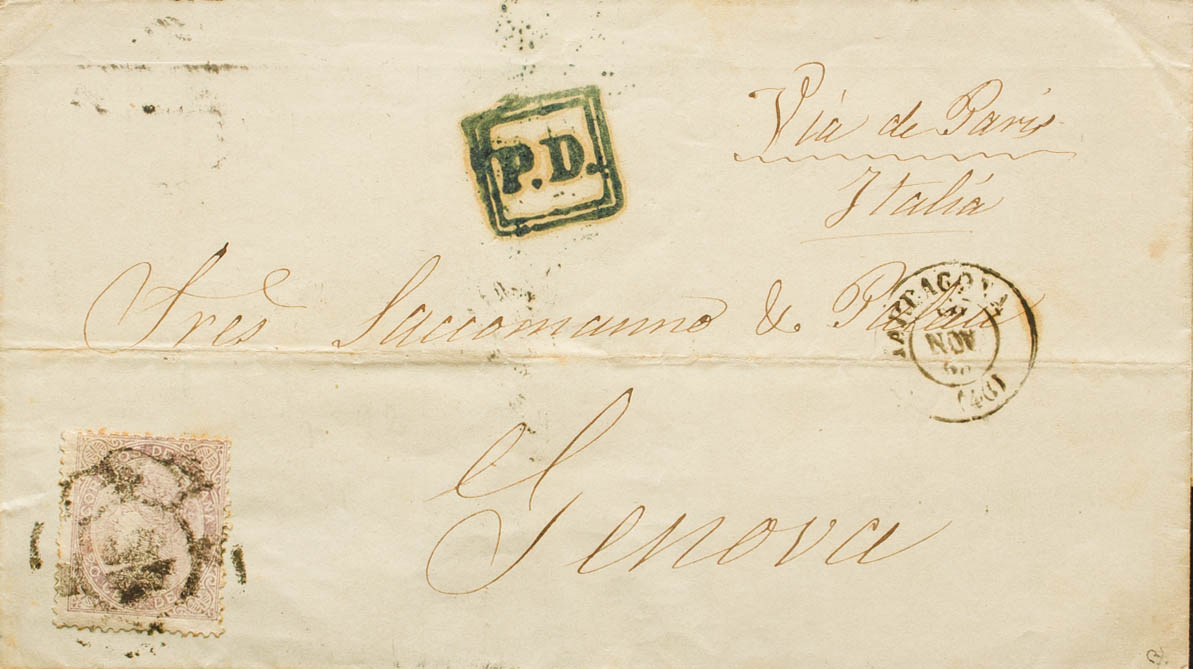 P.D.
Via de Paris
Italia
Sres Saccomanno &
TARRAGONA
NOV
(46)
Genova